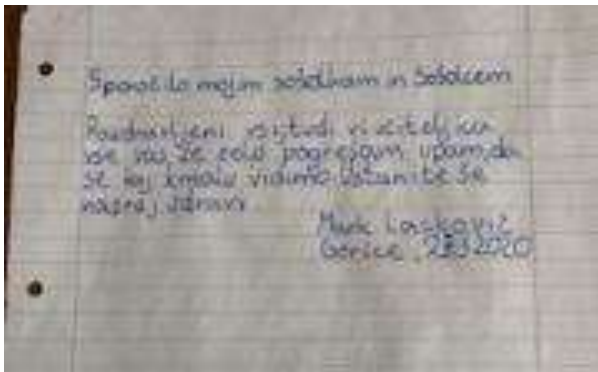 Sporočilo mojim sošolkam in sošolcem
Pozdravljeni vsi, tudi vi učiteljica
vse vas že zelo pogrešam, upam, da
se kaj kmalu vidimo. Ostanite še
naprej zdravi
Mark
Gorice, 2020